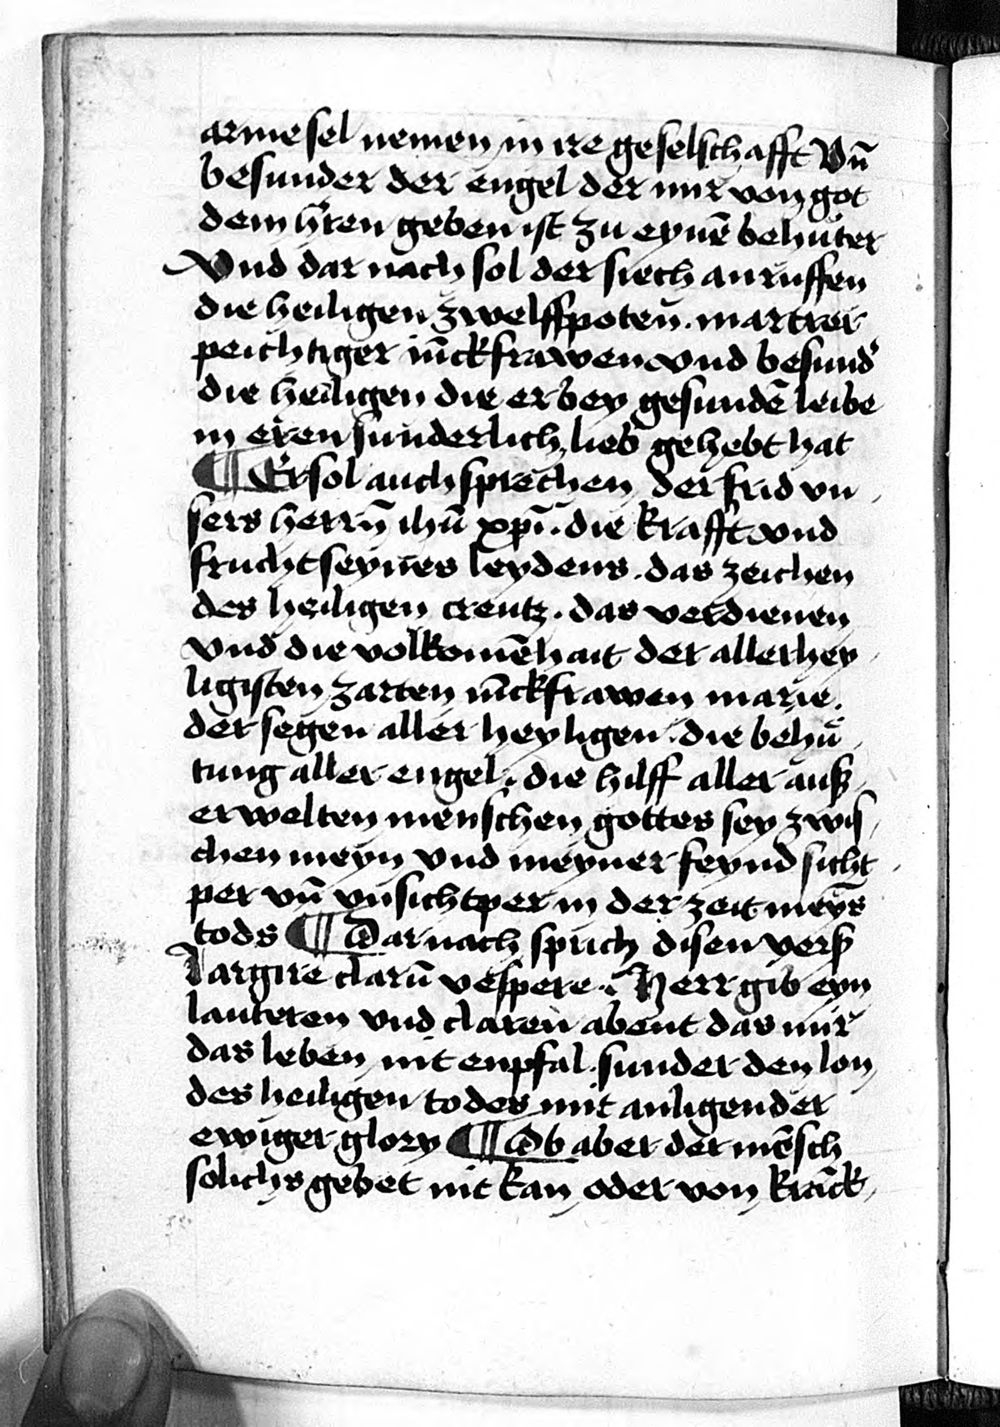 arme sel nemen in ire geselschafft Vn̄
besunder der engel der mir von got
dem hr̄en geben ist zu eynē behuter
Vnd dar nach sol der siech an ruffen
die heiligen zwelffpoten̄. martrer
peichtiger iūckfrawen vnd besund̕
die heiligen die er bey gesundē leibe
in eren sunderlich lieb gehebt hat
¶ Er sol auch sprechen der frid vn
sers herrn̄ ihū xp̄i. die krafft vnd
frucht seynes leydens. das zeichen
des heiligen creutz. das verdienen
vnd die volkomēhait der allerhey
ligisten zarten iūckfrawen marie.
der segen aller heyligen. die behů
tung aller engel. die hilff aller auß
erwelten menschen gottes sey zwis
chen meyn vnd meyner feynd sicht
per vn̄ vnsichtper in der zeit meȳs
tods ¶ Dar nach sprich disen verß
Largire clarū vespere. Herr gib eyn
lauteren vnd claren abent das mir
das leben nit enpfal. sunder den lon
des heiligen todes mit anligender
ewiger glory ¶ Ob aber der mēsch
solichs gebet nit kan oder von krāck